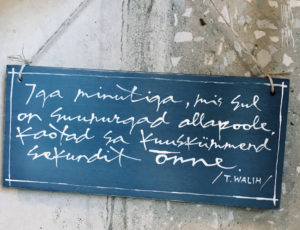 Iga minutiga, mis sul
on suunurgad allapoole,
kaotad sa kuuskümmend
sekundit õnne.
/T. WALIH/